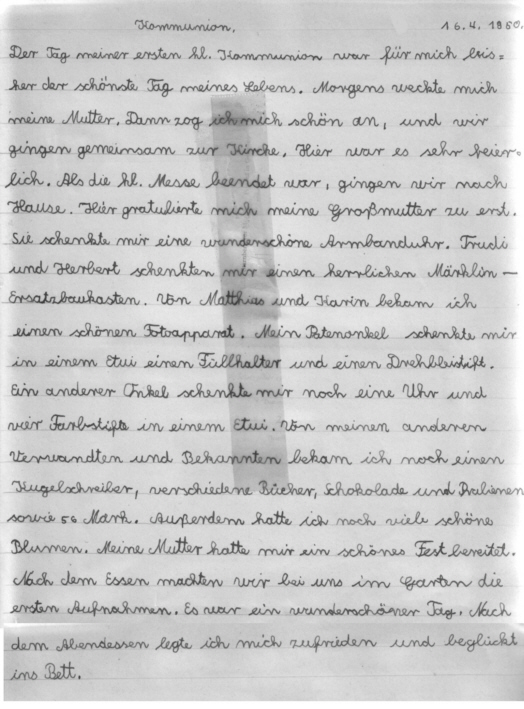 Kommunion. 16.4.1960.
Der Tag meiner ersten hl. Kommunion war für mich bis=
her der schönste Tag meines Lebens. Morgens weckte mich
meine Mutter. Dann zog ich mich schön an, und wir
gingen gemeinsam zur Kirche. Hier war es sehr feier=
lich. Als die hl. Messe beendet war, gingen wir nach
Hause. Hier gratulierte mich meine Großmutter zu erst.
Sie schenkte mir eine wunderschöne Armbanduhr. Trudi
und Herbert schenkten mir einen herrlichen Märklin–
Ersatzbaukasten. Von Matthias und Karin bekam ich
einen schönen Fotoapparat. Mein Patenonkel schenkte mir
in einem Etui einen Füllhalter und einen Drehbleistift.
Ein anderer Onkel schenkte mir noch eine Uhr und
vier Farbstifte in einem Etui. Von meinen anderen
Verwandten und Bekannten bekam ich noch einen
Kugelschreiber, verschiedene Bücher, Schokolade und Pralienen
sowie 50 Mark. Außerdem hatte ich noch viele schöne
Blumen. Meine Mutter hatte mir ein schönes Fest bereitet.
Nach dem Essen machten wir bei uns im Garten die
ersten Aufnahmen. Es war ein wunderschöner Tag. Nach
dem Abendessen legte ich mich zufrieden und beglückt
ins Bett.